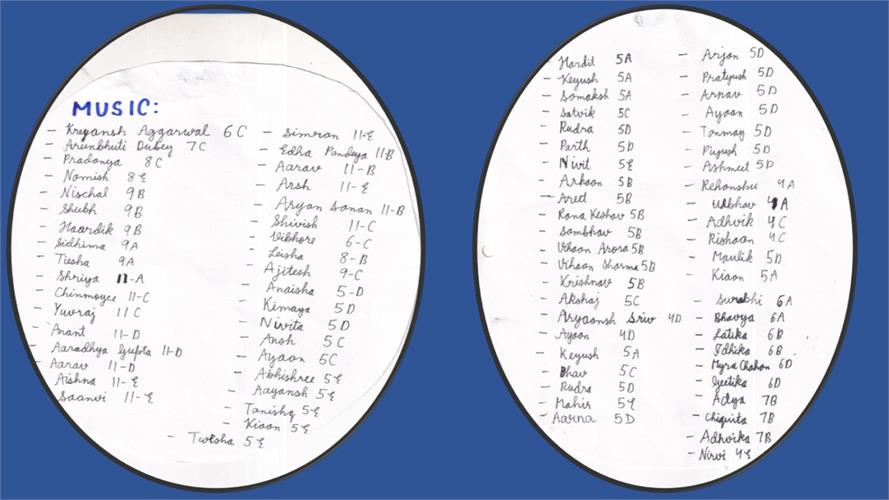 MUSIC:
- Kreyansh Aggarwal 6C
- Arunbhuti Dubey 7C
- Pradanya 8C
- Namish 8E
- Nischal 9B
- Shubh 9B
- Haardik 9B
- Sidhima 9A
- Tiesha 9A
- Shriya 11-A
- Chinmoyee 11-C
- Yuvraj 11C
- Anant 11-D
- Aaradhya Gupta 11-D
- Aarav 11-D
- Aishna 11-E
- Saanvi 11-E
- Simran 11-E
- Edha Pandeya 11-B
- Aarav 11-B
- Arsh 11-E
- Aryan Sanan 11-B
- Shivish 11-C
- Vibhore 6-C
- Leisha 8-B
- Ajitesh 9-C
- Anaisha 5-D
- Kimaya 5D
- Nivita 5D
- Ansh 5C
- Ayaan 6C
- Abhishree 5E
- Aayansh 5E
- Tanishq 5E
- Kiaan 5E
- Twisha 5E
- Hardil 5A
- Keyush 5A
- Somaksh 5A
- Satvik 5C
- Rudra 5D
- Parth 5D
- Nivit 5E
- Arhaan 5B
- Aret 5B
- Rana Keshav 5B
- Sambhav 5B
- Vihaan Arora 5B
- Vihaan Sharma 5B
- Krishnav 5B
- Akshaj 5C
- Aryaansh Sriv 4D
- Ayaan 4D
- Keyush 5A
- Bhav 5C
- Rudra 5D
- Mahir 5E
- Aarna 5D
- Arjan 5D
- Pratyush 5D
- Arnav 5D
- Ayaan 5D
- Tanmay 5D
- Piyush 5D
- Ashmeet 5D
- Rehanshu 4A
- Udbhav 4A
- Adhvik 4C
- Rishaan 4C
- Maulik 5D
- Kiaan 5A
- Surabhi 6A
- Bhavya 6A
- Latika 6B
- Idhika 6B
- Myra Chahan 6D
- Jyetika 6D
- Adya 7B
- Chiquita 7B
- Adhvika 7B
- Nirvi 4E